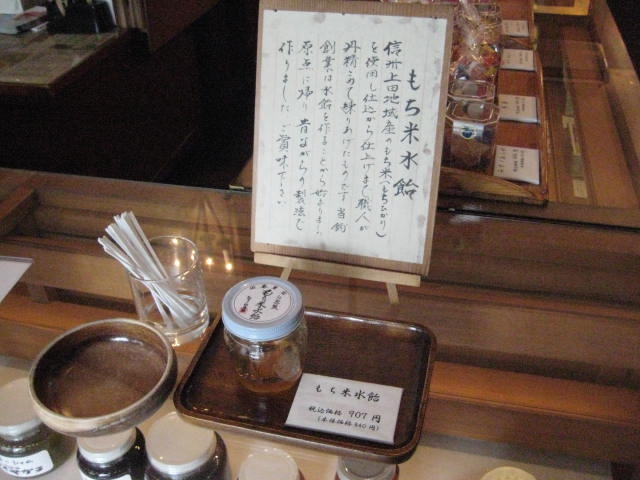 もち米水飴
信州上田地域産のもち米(もちひかり)
を使用し仕込から仕上げまで職人が
丹精こめて練りあげたものです 当飴
創業は水飴を作ることから始まりました
原点に帰り昔ながらの製法で
作りました ご賞味下さい
もち米水飴
もち米水飴
税込価格 907円
(本体価格 840円)